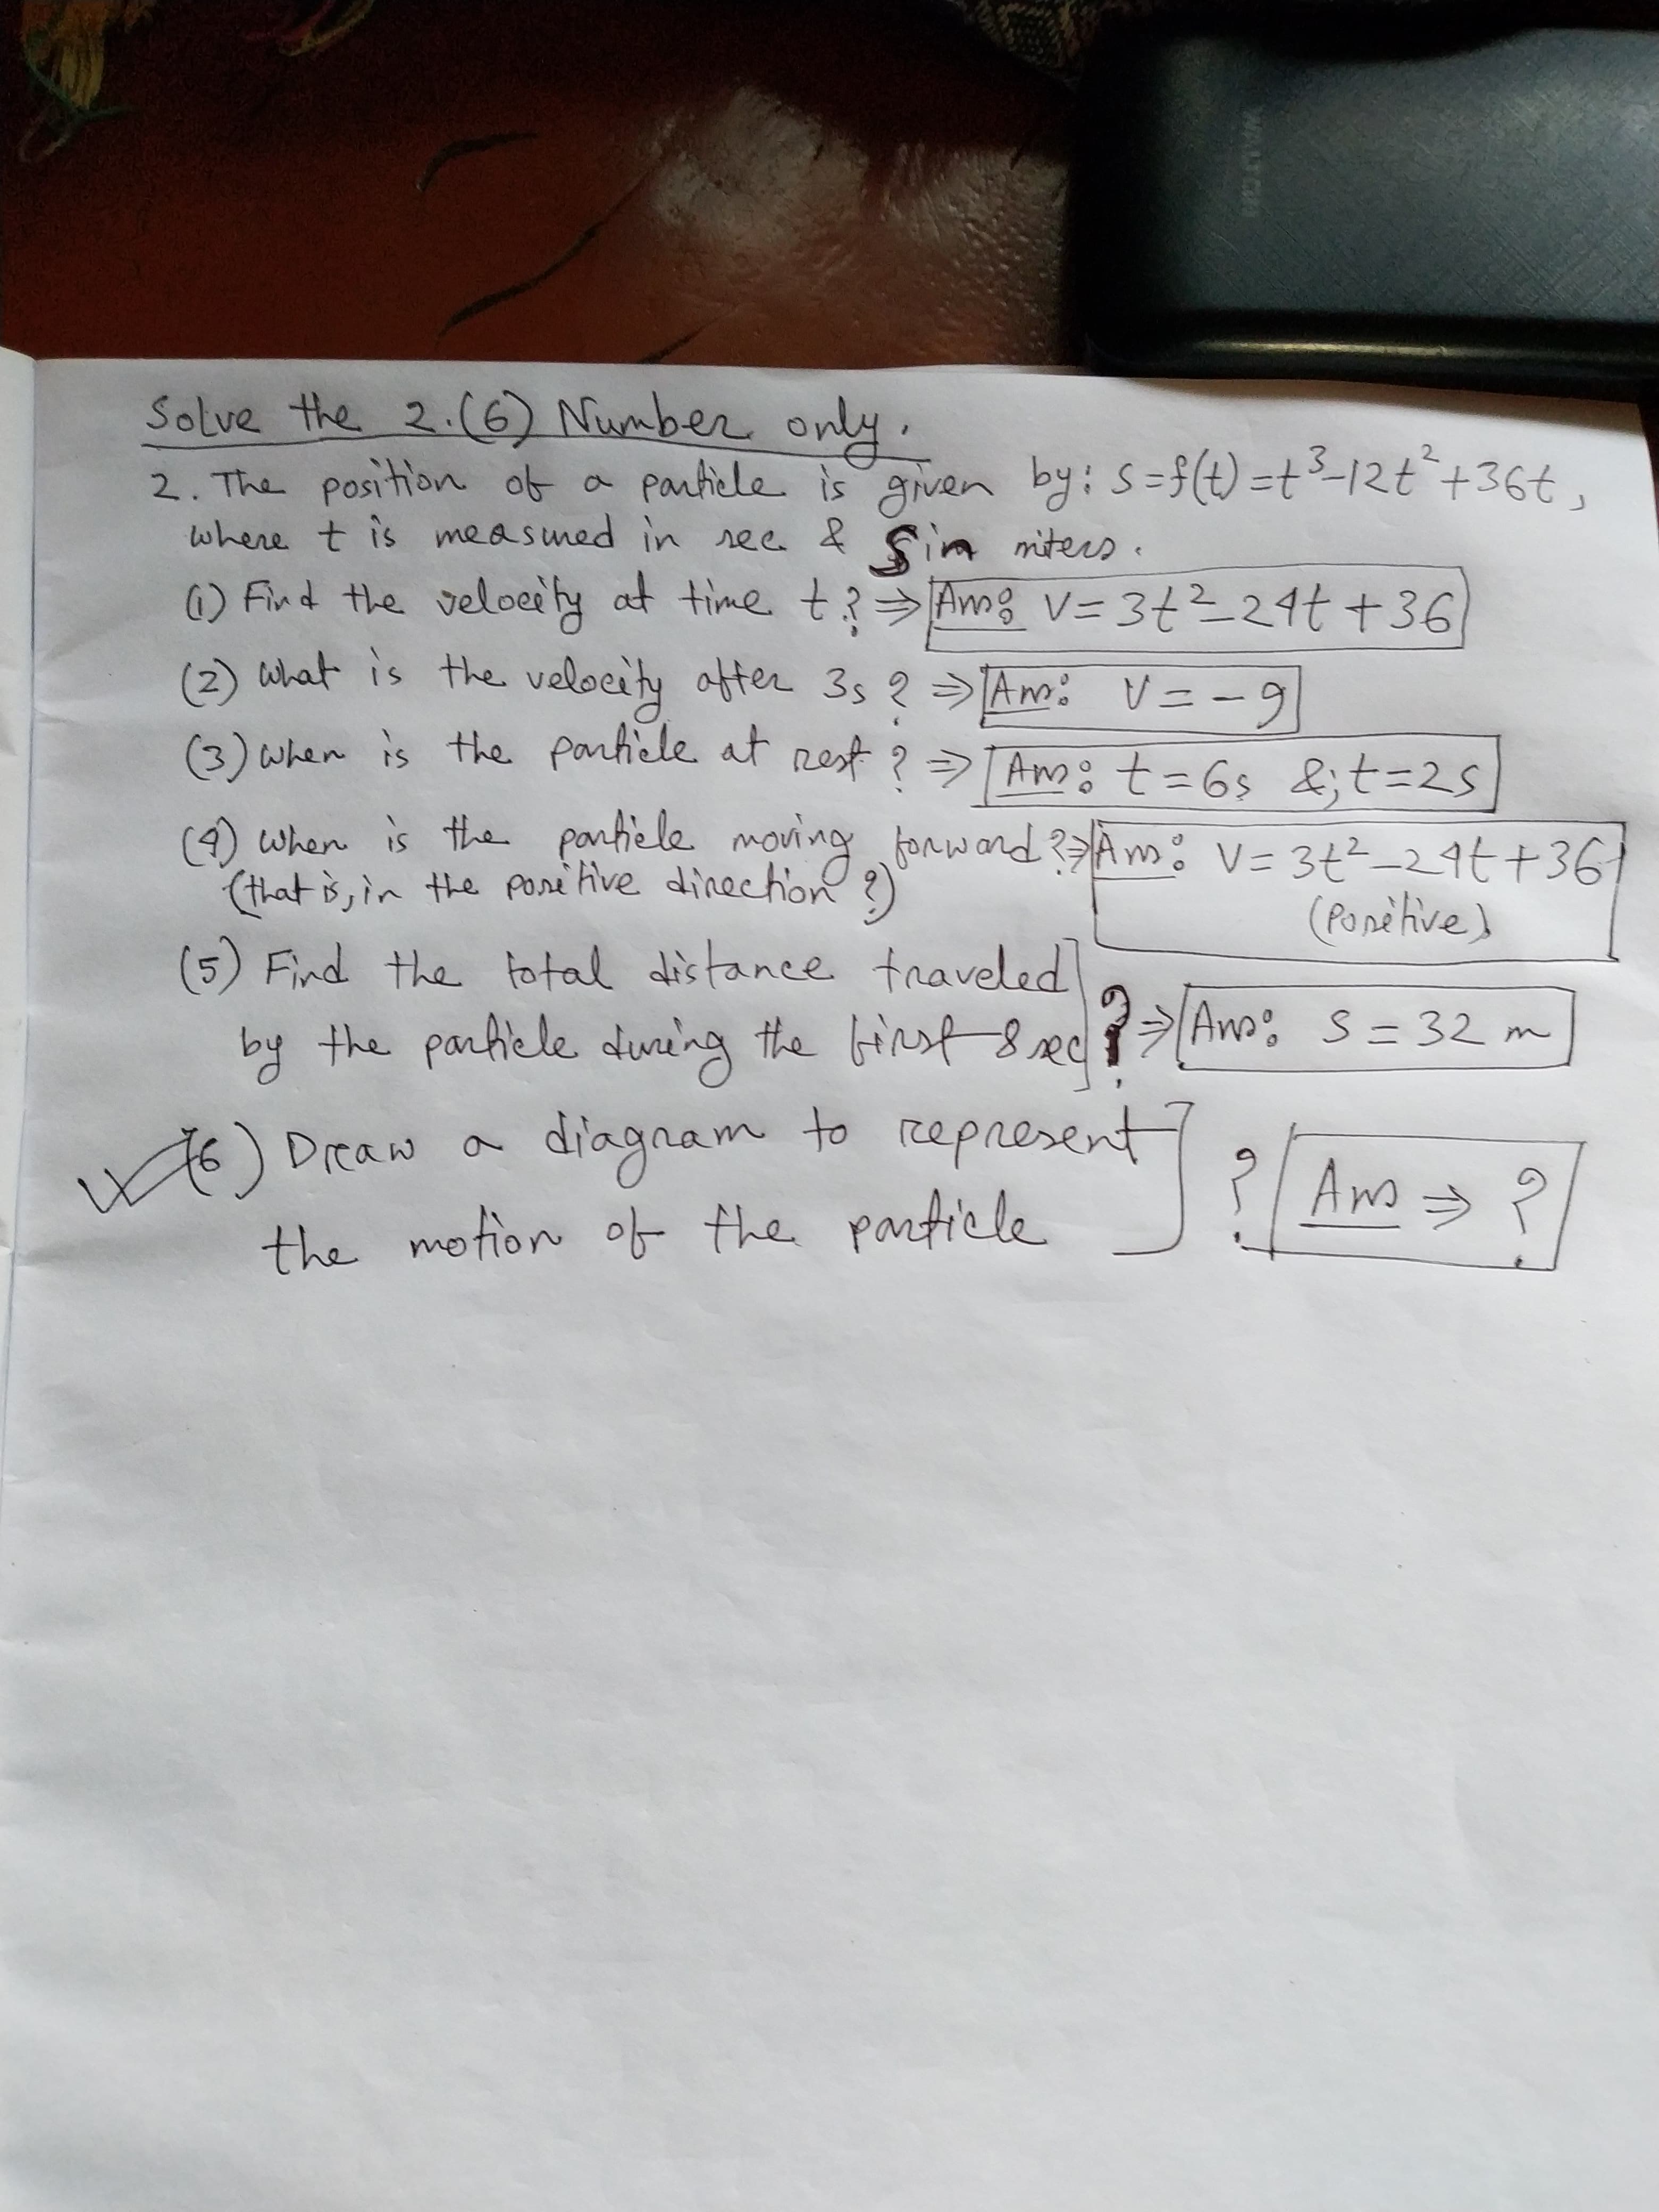 Solve the 2.(6) Number only.
2. The position of a particle is given by: s=f(t)=t³-12t²+36t,
where t is measured in sec & S in miters.
(1) Find the velocity at time t? ⇒ Ans: V=3t²-24t+36
(2) What is the velocity after 3s? ⇒ Ans: V=-9
(3) When is the particle at rest? ⇒ Ans: t=6s &; t=2s
(4) When is the particle moving forward? ⇒ Ans: V=3t²-24t+36
(that is, in the positive direction?) (Positive)
(5) Find the total distance traveled
by the particle during the first 8 sec ? ⇒ Ans: S=32 m
(6) Draw a diagram to represent
the motion of the particle ? Ans ⇒ ?